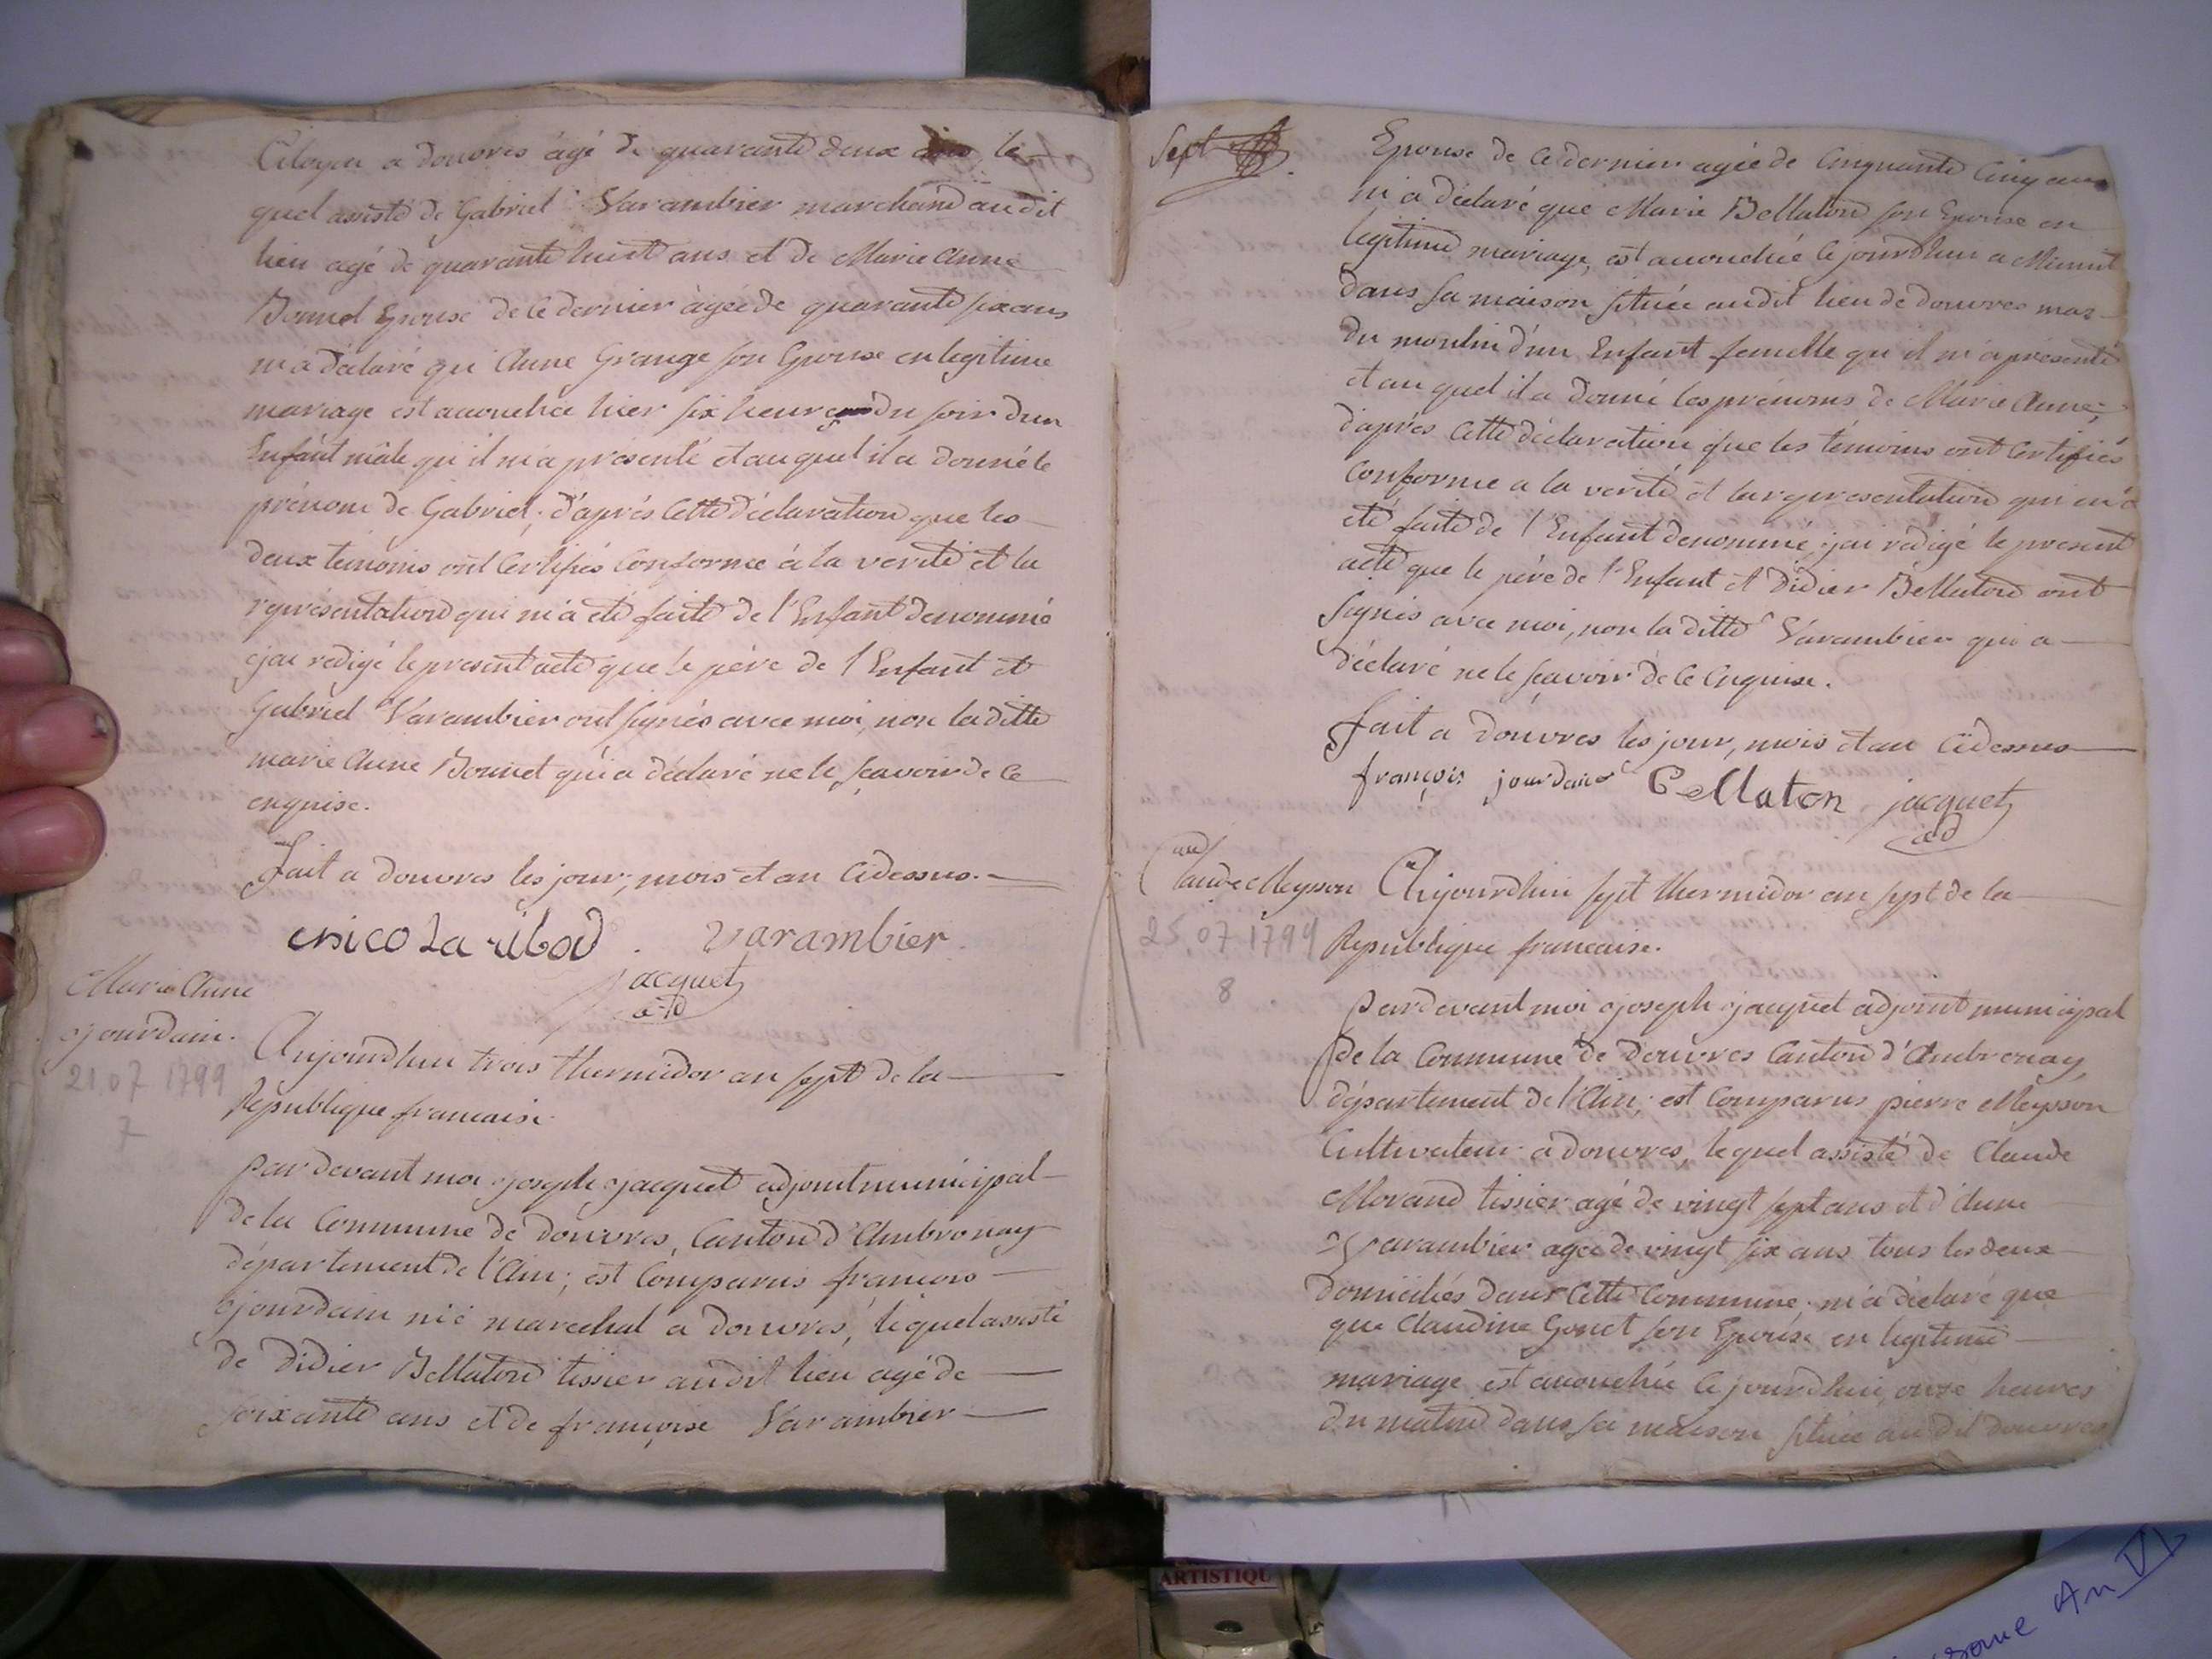 Citoyen a douvres âgé de quarante deux ans le
quel assisté de Gabriel Varambier marchand audit
lieu agé de quarante huit ans et de Marie Anne
Bonnet Epouse de ce dernier àgée de quarante six ans
m'a déclaré qu'Anne Grange son Epouse en legitime
mariage est accouchée hier six heures du soir d'un
Enfant mâle qu'il m'a présenté et auquel il a donné le
prénom de Gabriel; d'aprés cette déclaration que les
deux témoins ont Certifiés Conforme à la verité et la
représentation qui m'a eté faite de l'Enfant denommé
j'ai redigé le present acte que le pére de l'Enfant et
Gabriel Varambier ont signés avec moi, non la ditte
marie Anne Bonnet qui a déclaré ne le sçavoir de ce
enquise.
fait a douvres les jour, mois et an cidessus.
nicola ribod . varambier
jacquet
ad
Marie Anne
jourdain.
21.07 1799
7
Aujourdhui trois thermidor an sept de la
Republique francaise.
pardevant moi joseph jacquet adjoint municipal
de la Commune de douvres, Canton d'Ambronay
département de l'Ain; est Comparus francois
jourdain marechal a douvres, lequel assisté
de Didier Bellaton tissier audit lieu agé de
soixante ans et de françoise Varambier
Sept
Epouse de ce dernier agée de Cinquante Cinq ans
m'a déclaré que Marie Bellaton son Epouse en
legitime mariage, est accouchée cejourdhui a Minuit
dans sa maison située audit lieu de douvres mas
du moulin d'un Enfant femelle qu'il m'a présenté
et auquel il a donné les prénoms de Marie Anne;
d'aprés cette déclaration que les témoins ont Certifiés
Conforme a la verité et la representation qui m'a
été faite de l'Enfant denommé, j'ai rédigé le present
acte que le pére de l'Enfant et Didier Bellaton ont
signés avec moi, non la ditte Varambier qui a
déclaré ne le sçavoir de ce enquise.
fait a douvres les jour, mois et an cidessus
françois jourdain Bellaton jacquet
ad
Claude Meysson
25.07 1799
8
Aujourdhui sept thermidor an sept de la
Republique francaise.
pardevant moi joseph jacquet adjoint municipal
de la Commune de douvres Canton d'Ambronay
département de l'Ain; est Comparus pierre Meysson
Cultivateur a douvres, lequel assisté de Claude
Morand tissier agé de vingt sept ans et d'Anne
Varambier agée de vingt six ans tous les deux
domiciliés dans cette Commune; m'a déclaré que
que Claudine Gonet son Epouse en legitime
mariage est accouchée cejourdhui, onze heures
du matin dans sa maison située audit douvres
ARTISTIQU
An VI